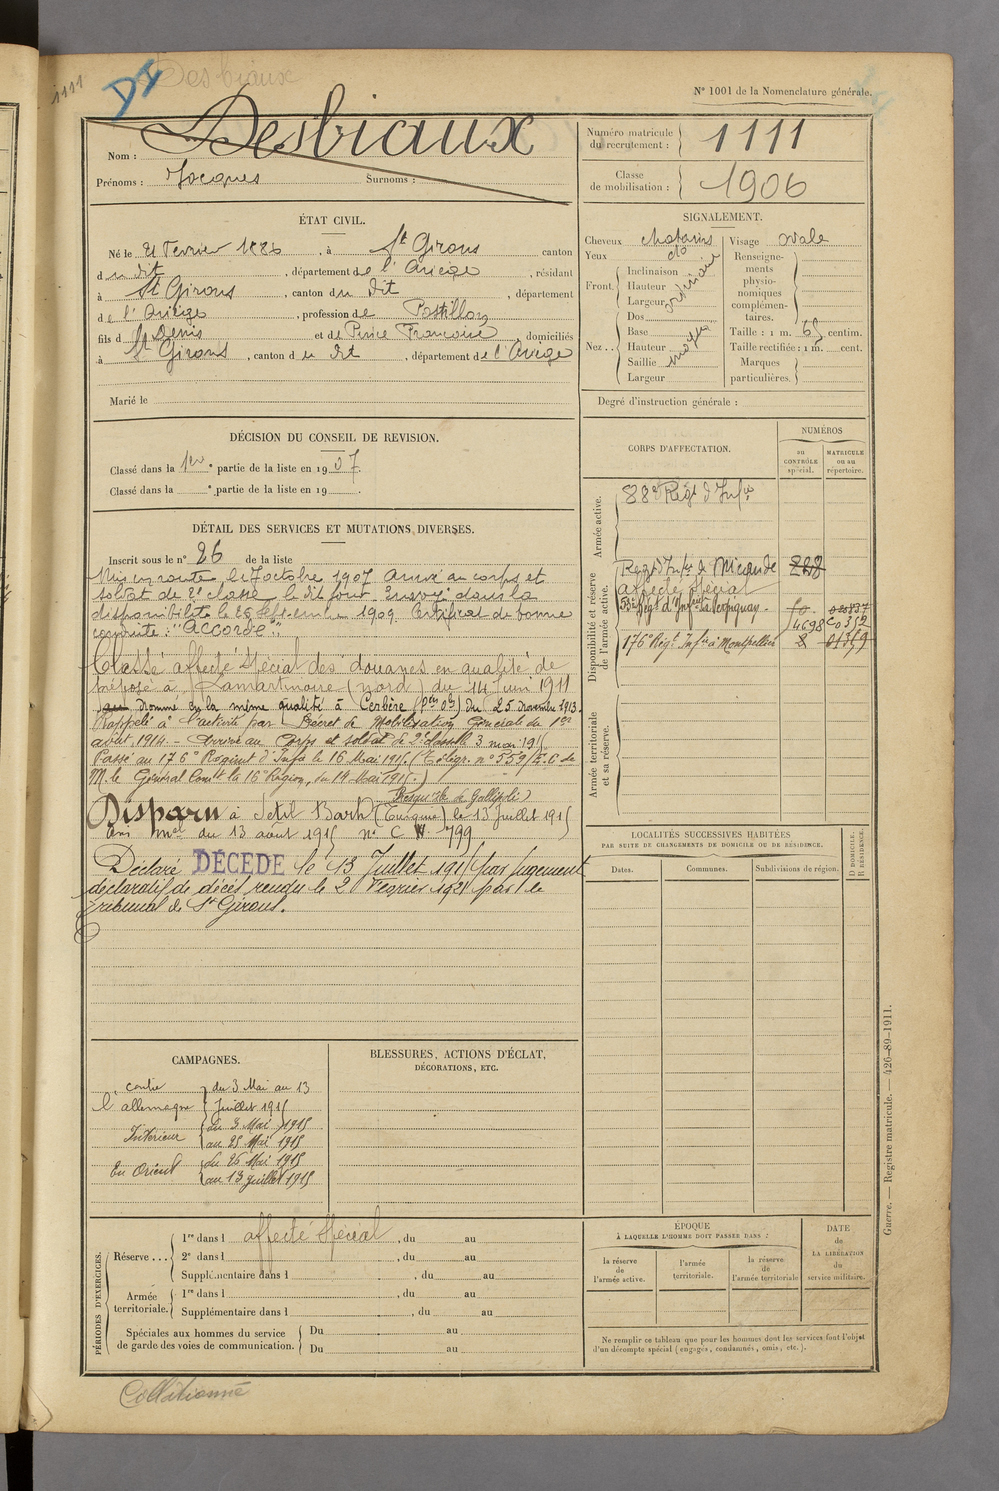 1111
DI
Desbiaux
N° 1001 de la Nomenclature générale.
Nom : Desbiaux
Prénoms : Jacques Surnoms :
Numéro matricule du recrutement : 1111
Classe de mobilisation : 1906
ÉTAT CIVIL.
Né le 21 Février 1886, à St Girons canton
du dit, département de l'Ariège, résidant
à St Girons, canton du dit, département
de l'Ariège, profession de Postillon
fils de Denis et de Françoise, domiciliés
à St Girons, canton du dit, département de l'Ariège
Marié le
SIGNALEMENT.
Cheveux chatains Visage ovale
Yeux do
Front. Inclinaison
Hauteur ordinaire
Largeur
Nez.. Dos
Base
Hauteur moyen
Saillie
Largeur
Renseignements physionomiques complémentaires.
Taille : 1 m. 65 centim.
Taille rectifiée : 1 m. cent.
Marques particulières.
Degré d'instruction générale :
DÉCISION DU CONSEIL DE REVISION.
Classé dans la 1ère partie de la liste en 1907.
Classé dans la e partie de la liste en 19 .
DÉTAIL DES SERVICES ET MUTATIONS DIVERSES.
Inscrit sous le n° 26 de la liste
Mis en route le 7 octobre 1907 arrivé au corps et
soldat de 2e classe le dit jour. Envoyé dans la
disponibilité le 25 septembre 1909 Certificat de bonne
conduite : "Accordé".
Classé affecté spécial des douanes en qualité de
préposé à (nord) du 14 Juin 1911
nommé en la même qualité à Cerbère (Pées Oles) du 25 Novembre 1913.
Rappelé à l'activité par Décret de Mobilisation Générale du 1er
août 1914 - Arrivé au Corps et soldat de 2e classe le 3 mai 1915
Passé au 176e Régiment d'Infie le 16 Mai 1915. (Télégr. n° 559/E.C de
M. le Général Comt la 16e Région, du 14 Mai 1915.)
(Presqu'île de Gallipoli)
Disparu à Setil Barh (Turquie) le 13 Juillet 1915
Avis mel du 13 août 1915 n° C W 799
Déclaré DÉCÉDÉ le 13 Juillet 1915 par jugement
déclaratif de décès rendu le 2 Février 1921 par le
tribunal de St Girons.
CORPS D'AFFECTATION.
NUMÉROS
au CONTRÔLE spécial.
MATRICULE ou au répertoire.
Armée active.
88e Régt d'Infie
Disponibilité et réserve de l'armée active.
Régt d'Infie de Mirande 228
affecté spécial
53e Régt d'Infant à Perpignan
4698
176e Régt Infie à Montpellier
Armée territoriale et sa réserve.
LOCALITÉS SUCCESSIVES HABITÉES
PAR SUITE DE CHANGEMENTS DE DOMICILE OU DE RÉSIDENCE.
Dates. Communes. Subdivisions de région. D DOMICILE. R RÉSIDENCE.
CAMPAGNES.
contre l'allemagne du 3 Mai au 13 Juillet 1915
Intérieur du 3 Mai 1915
au 25 Mai 1915
En Orient du 26 Mai 1915
au 13 juillet 1915
BLESSURES, ACTIONS D'ÉCLAT,
DÉCORATIONS, ETC.
PÉRIODES D'EXERCICES.
Réserve... 1re dans l affecté spécial, du au
2e dans l , du au
Supplémentaire dans l , du au
Armée territoriale. 1re dans l , du au
Supplémentaire dans l , du au
Spéciales aux hommes du service de garde des voies de communication. Du au
Du au
ÉPOQUE
À LAQUELLE L'HOMME DOIT PASSER DANS :
la réserve de l'armée active.
l'armée territoriale.
la réserve de l'armée territoriale
DATE de LA LIBÉRATION du service militaire.
Ne remplir ce tableau que pour les hommes dont les services font l'objet
d'un décompte spécial (engagés, condamnés, omis, etc.).
Guerre. — Registre matricule. — 426-89-1911.
Collationné